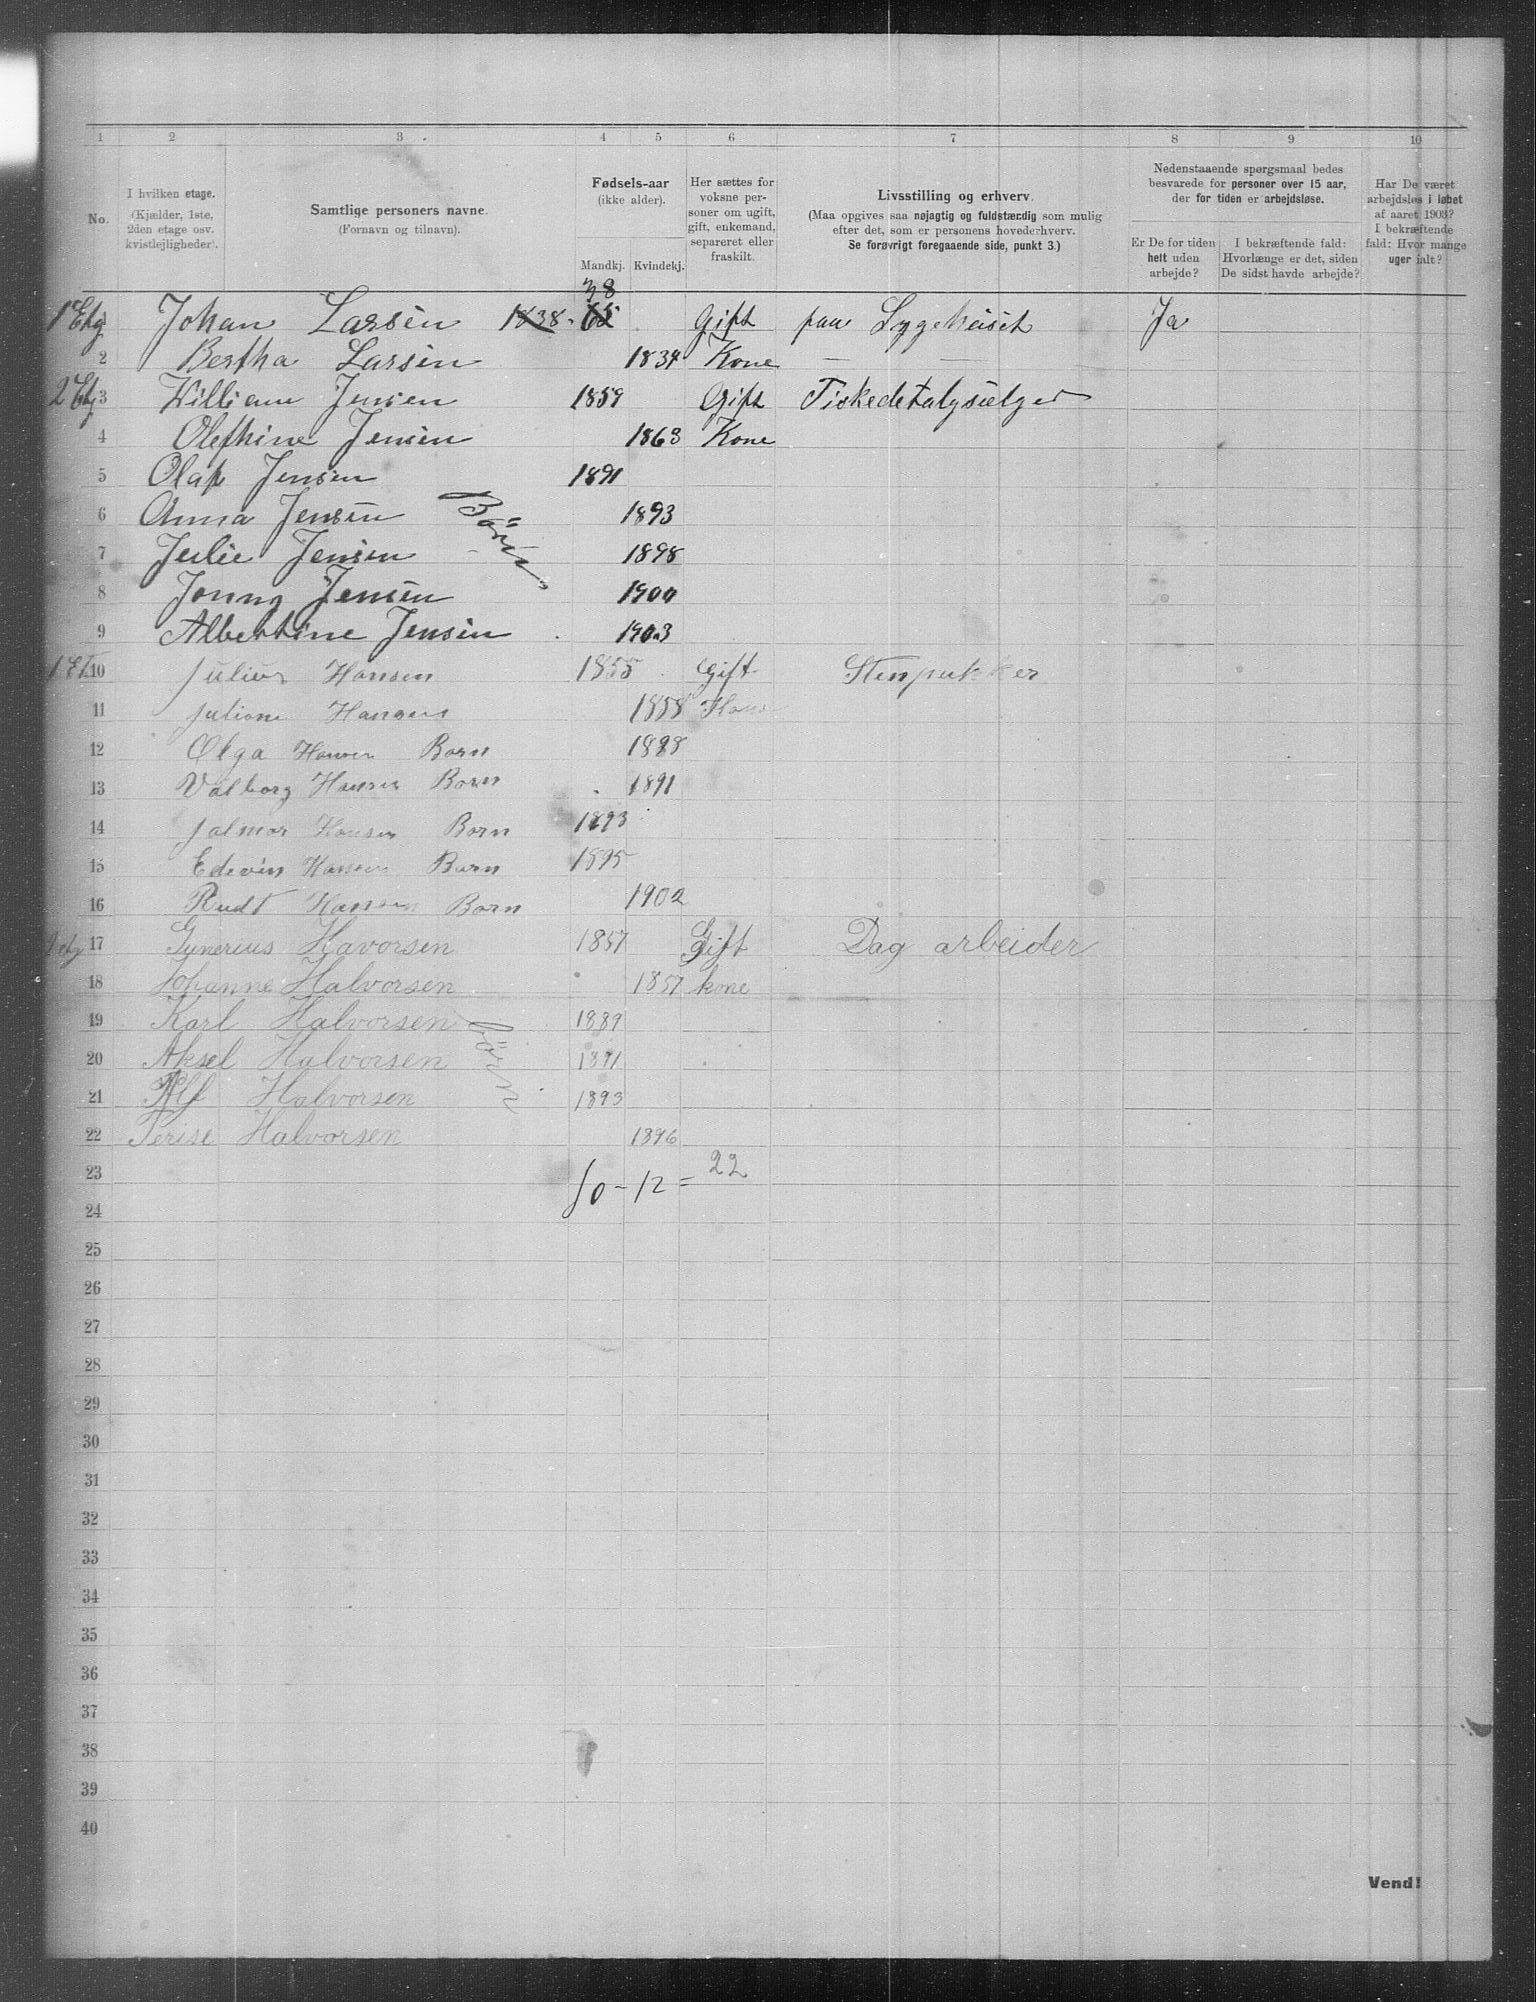 1 2 3 4 5 6 7 8 9 10
No.
I hvilken etage.
(Kjælder, 1ste,
2den etage osv.
kvistlejligheder).
Samtlige personers navne.
(Fornavn og tilnavn).
Fødsels-aar
(ikke alder).
Mandkj. Kvindekj.
Her sættes for
voksne per-
soner om ugift,
gift, enkemand,
separeret eller
fraskilt.
Livsstilling og erhverv.
(Maa opgives saa nøjagtig og fuldstændig som mulig
efter det, som er personens hovederhverv.
Se forøvrigt foregaaende side, punkt 3.)
Nedenstaaende spørgsmaal bedes
besvarede for personer over 15 aar,
der for tiden er arbejdsløse.
Er De for tiden
helt uden
arbejde?
I bekræftende fald:
Hvorlænge er det, siden
De sidst havde arbejde?
Har De været
arbejdsløs i løbet
af aaret 1903?
I bekræftende
fald: Hvor mange
uger ialt?
38
1 Etg Johan Larsen 1838 65 Gift paa Sygehuset Ja
2 Bertha Larsen 1834 Kone — —
2 Etg 3 William Jensen 1859 Gift Fiskedetalgsælger
4 Olefhine Jensen 1863 Kone
5 Olaf Jensen 1891
6 Anna Jensen Börn 1893
7 Julie Jensen 1898
8 Jonny Jensen 1900
9 Albertine Jensen 1903
1 Et. 10 Julius Hansen 1855 Gift Stenpukker
11 Juliane Hansen 1858 Kone
12 Olga Hansen Born 1888
13 Valborg Hansen Born 1891
14 Jalmar Hansen Born 1893
15 Edevin Hansen Born 1895
16 Rudt Hansen Born 1902
1 etg 17 Gunerius Havorsen 1857 Gift Dag arbeider
18 Johanne Halvorsen 1857 kone
19 Karl Halvorsen börn 1889
20 Aksel Halvorsen 1891
21 Alf Halvorsen 1893
22 Terise Halvorsen 1896
23
10 - 12 = 22
24
25
26
27
28
29
30
31
32
33
34
35
36
37
38
39
40
Vend!